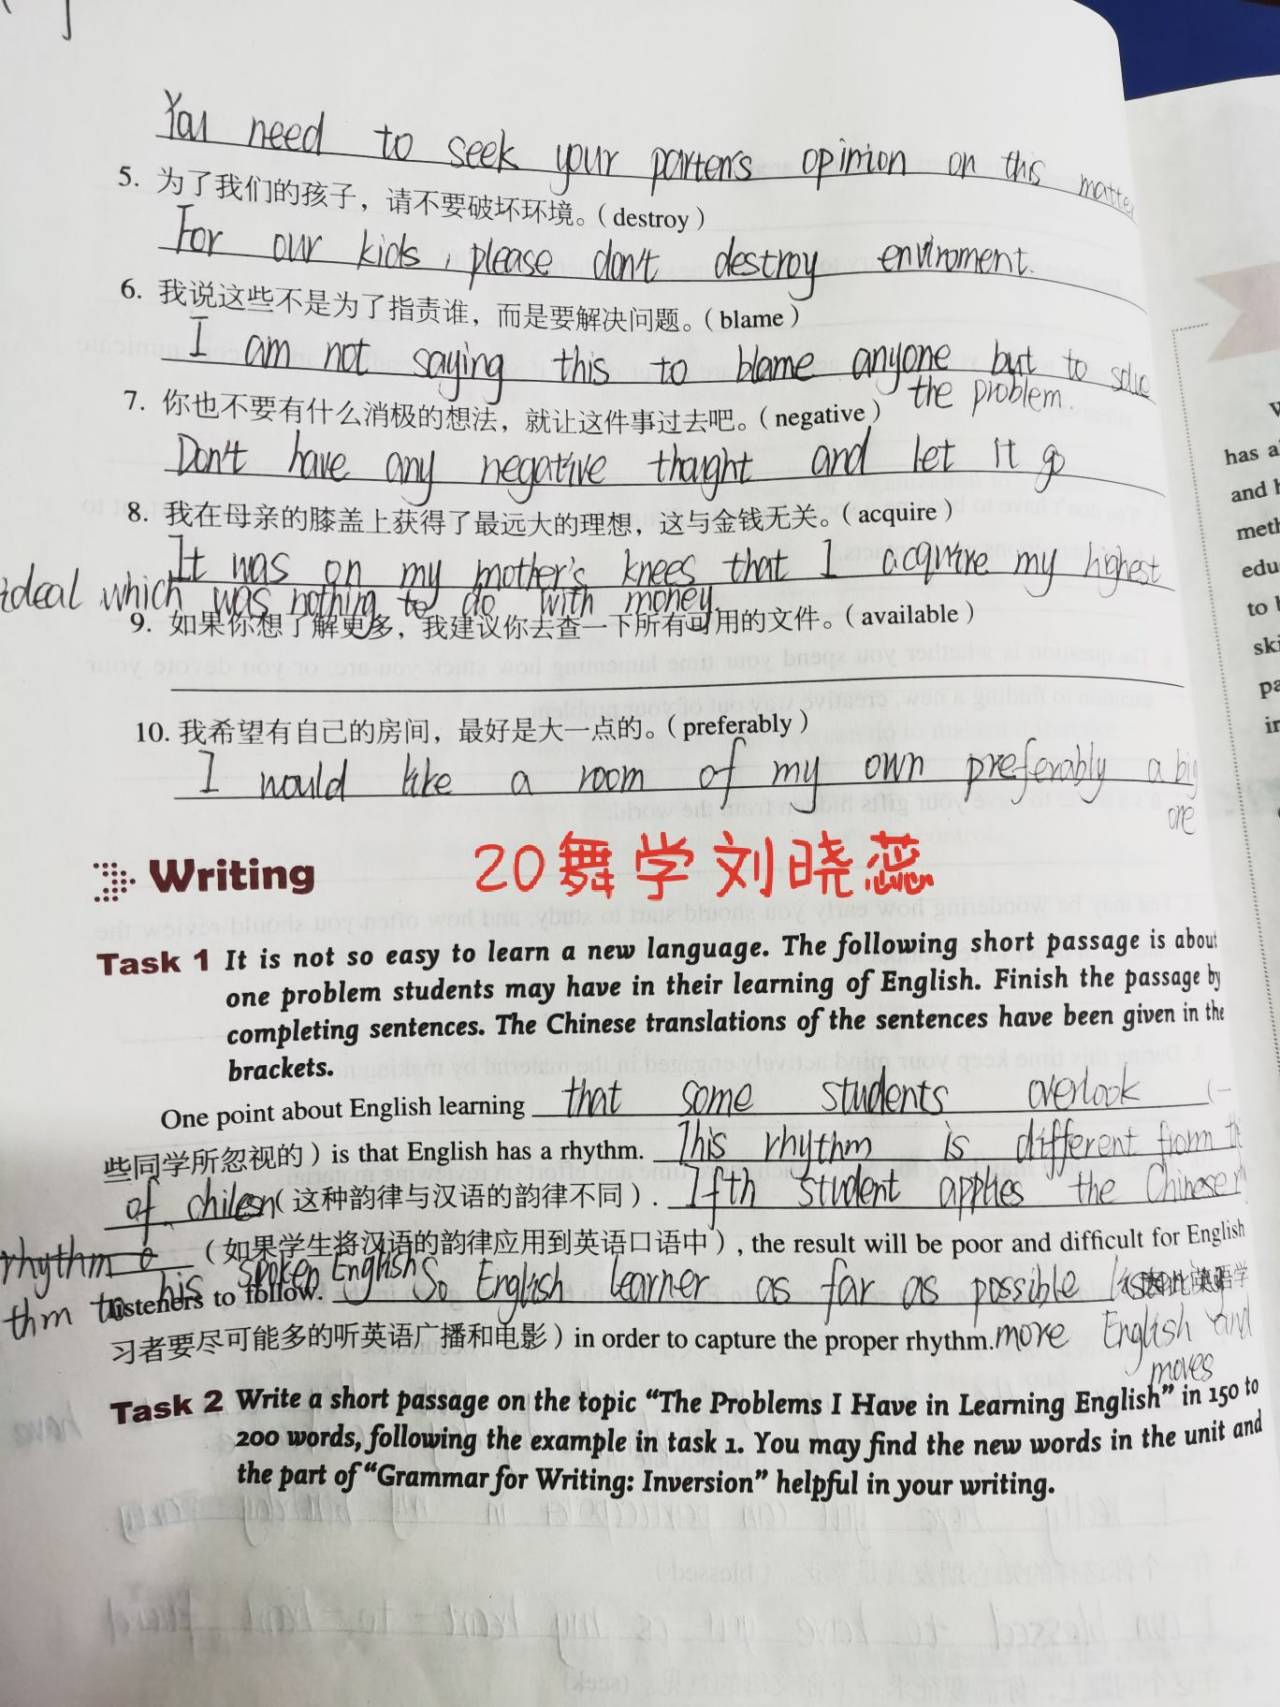 You need to seek your parten's opinion on this matte
5. 为了我们的孩子，请不要破坏环境。（destroy）
For our kids, please don't destroy enviroment.
6. 我说这些不是为了指责谁，而是要解决问题。（blame）
I am not saying this to blame anyone but to solve
the problem.
7. 你也不要有什么消极的想法，就让这件事过去吧。（negative）
Don't have any negative thought and let it go
8. 我在母亲的膝盖上获得了最远大的理想，这与金钱无关。（acquire）
It was on my mother's knees that I acquire my highest
ideal which was nothing to do with money.
9. 如果你想了解更多，我建议你去查一下所有可用的文件。（available）
10. 我希望有自己的房间，最好是大一点的。（preferably）
I would like a room of my own preferably a big
one
Writing
20舞学刘晓蕊
Task 1 It is not so easy to learn a new language. The following short passage is about
one problem students may have in their learning of English. Finish the passage by
completing sentences. The Chinese translations of the sentences have been given in the
brackets.
One point about English learning that some students overlook (一
些同学所忽视的) is that English has a rhythm. This rhythm is different from th
of chilesn (这种韵律与汉语的韵律不同). Ifth student applies the Chinese r
rhythm o (如果学生将汉语的韵律应用到英语口语中), the result will be poor and difficult for English
thm to his spoken English
listeners to follow. So English learner as far as possible (因此英语学
习者要尽可能多的听英语广播和电影) in order to capture the proper rhythm. more English and
moves
Task 2 Write a short passage on the topic “The Problems I Have in Learning English” in 150 to
200 words, following the example in task 1. You may find the new words in the unit and
the part of “Grammar for Writing: Inversion” helpful in your writing.
has a
and
meth
edu
to
ski
pa
in